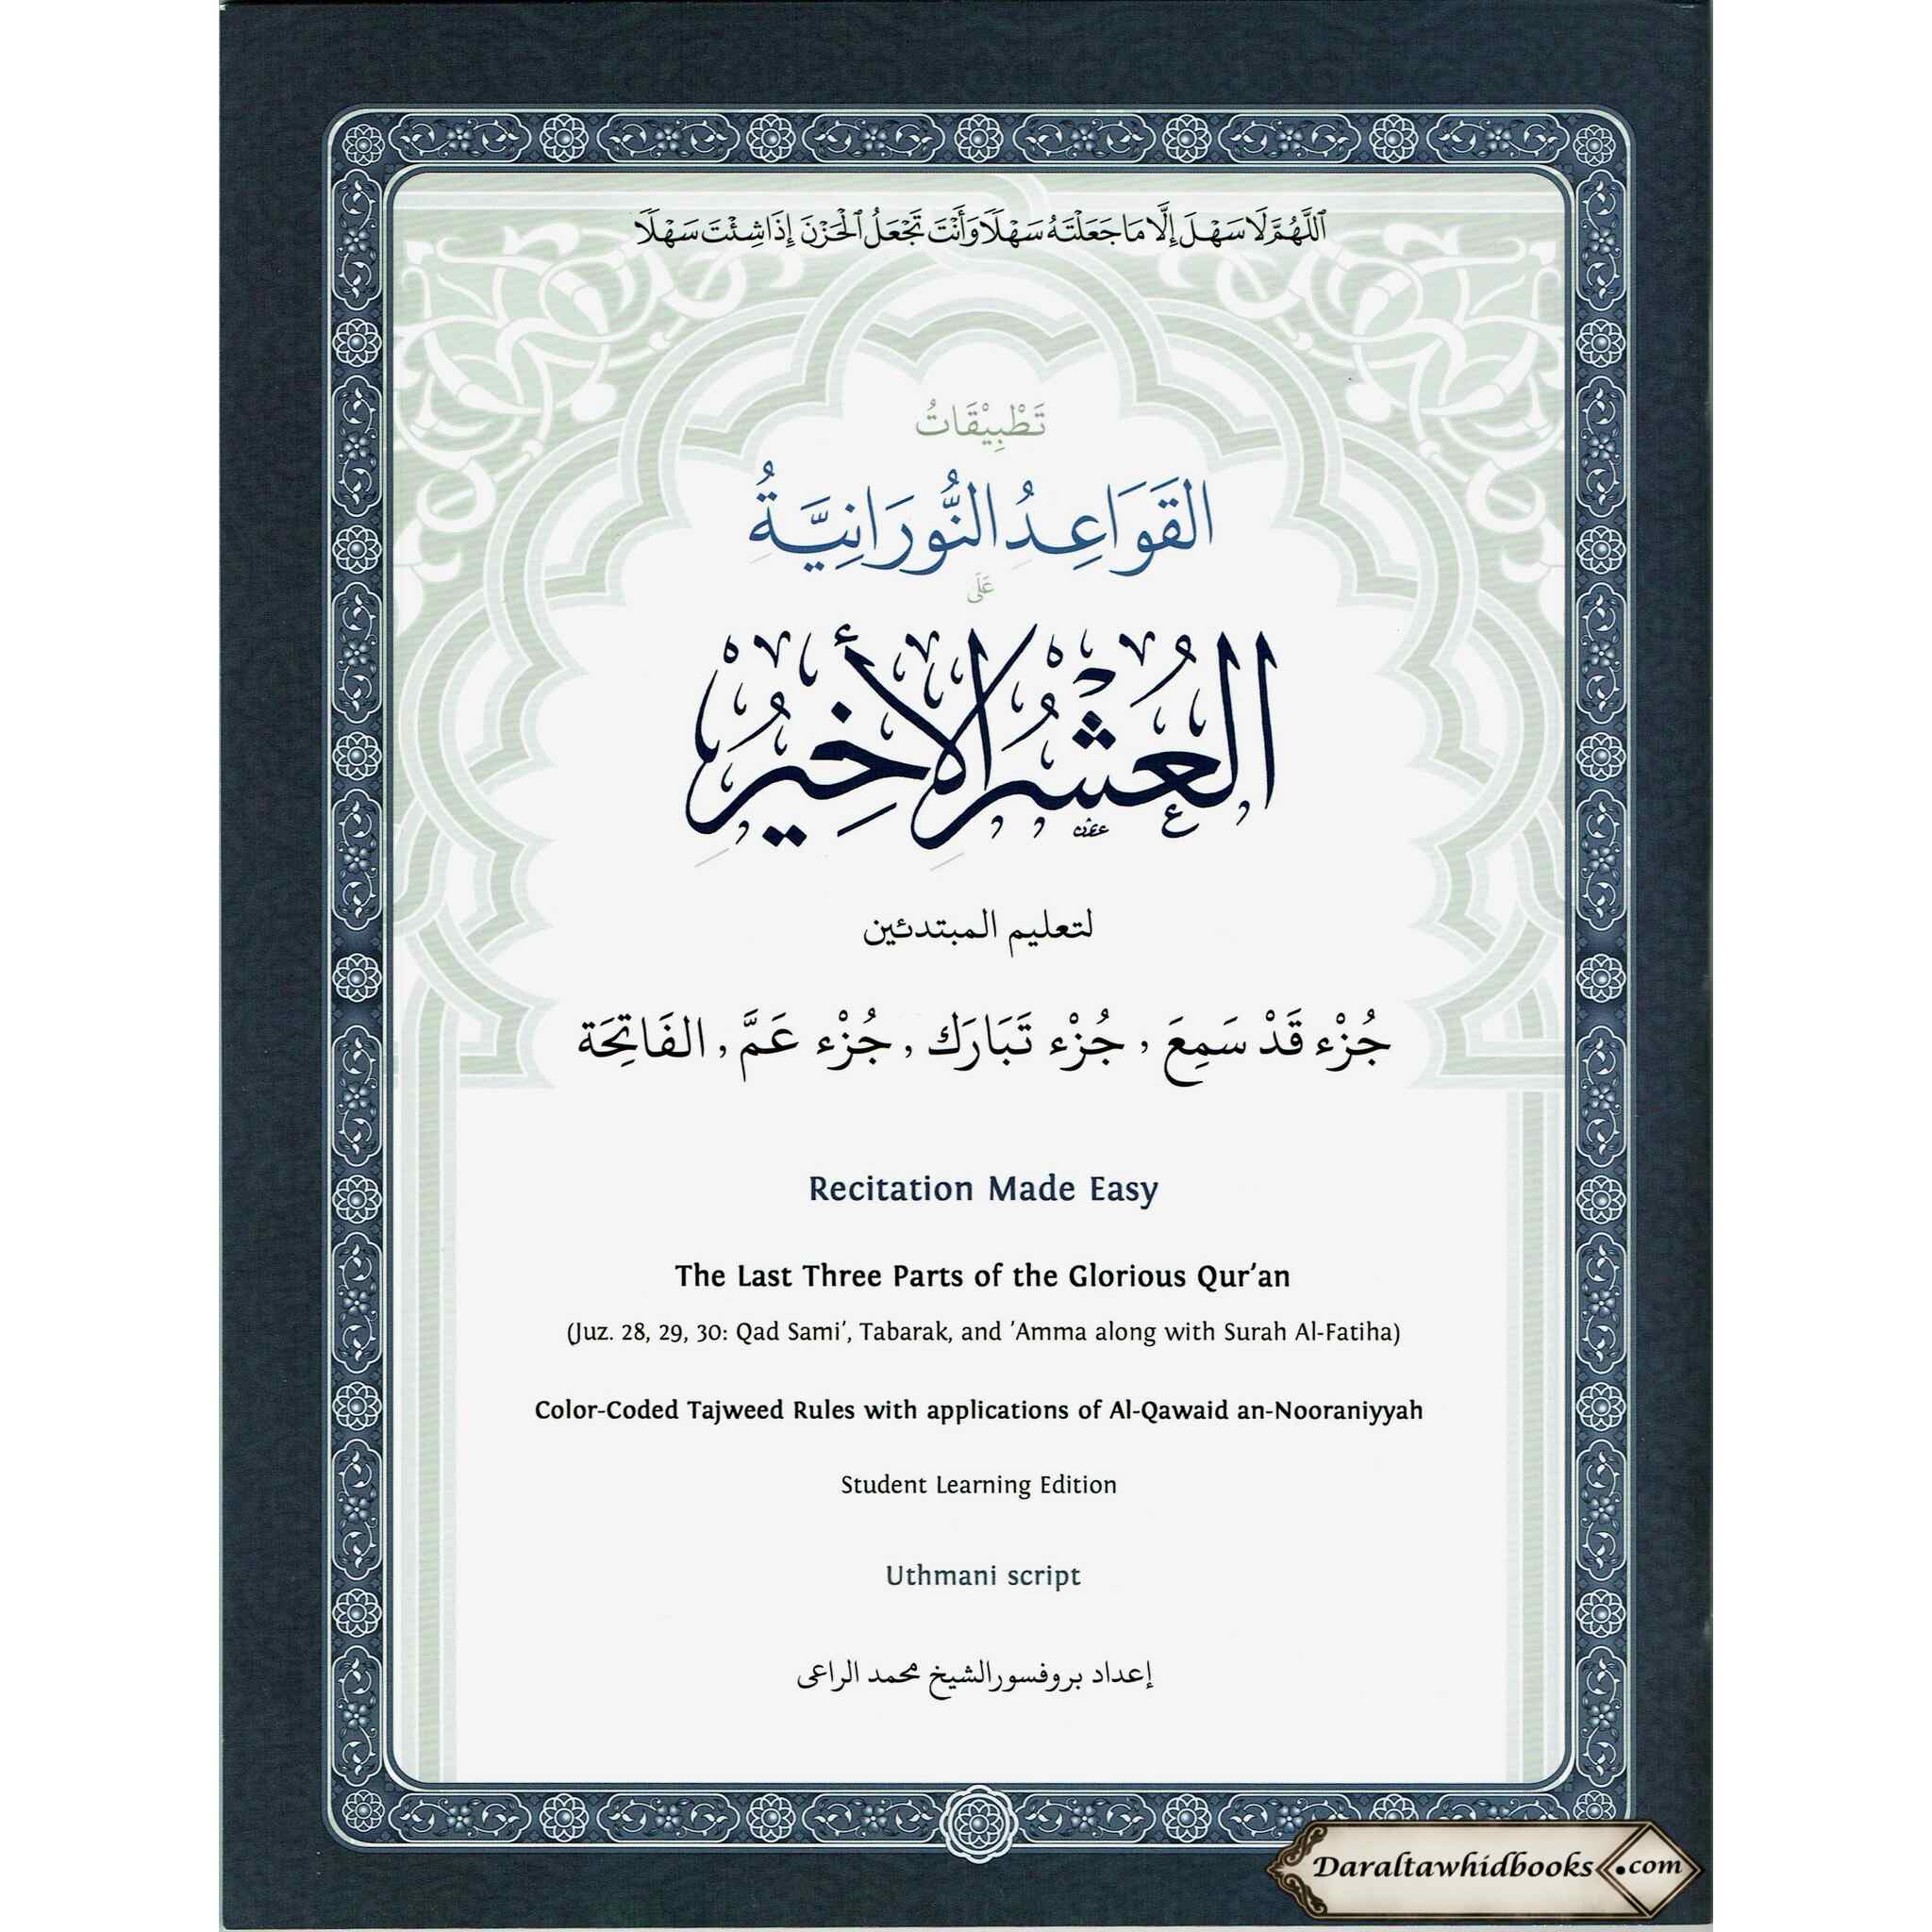 اَللَّهُمَّ لَا سَهْلَ إِلَّا مَا جَعَلْتَهُ سَهْلَا وَأَنْتَ تَجْعَلُ الْحَزْنَ إِذَا شِئْتَ سَهْلَا
تَطْبِيْقَاتُ
القَوَاعِدُ النُّورَانِيَّةُ
عَلَى
العُشْرُ الأَخِيرُ
لتعليم المبتدئين
جُزْء قَدْ سَمِعَ , جُزْء تَبَارَك , جُزْء عَمَّ , الفَاتِحَة
Recitation Made Easy
The Last Three Parts of the Glorious Qur’an
(Juz. 28, 29, 30: Qad Sami’, Tabarak, and ’Amma along with Surah Al-Fatiha)
Color-Coded Tajweed Rules with applications of Al-Qawaid an-Nooraniyyah
Student Learning Edition
Uthmani script
إعداد بروفسور الشيخ محمد الراعى
Daraltawhidbooks.com